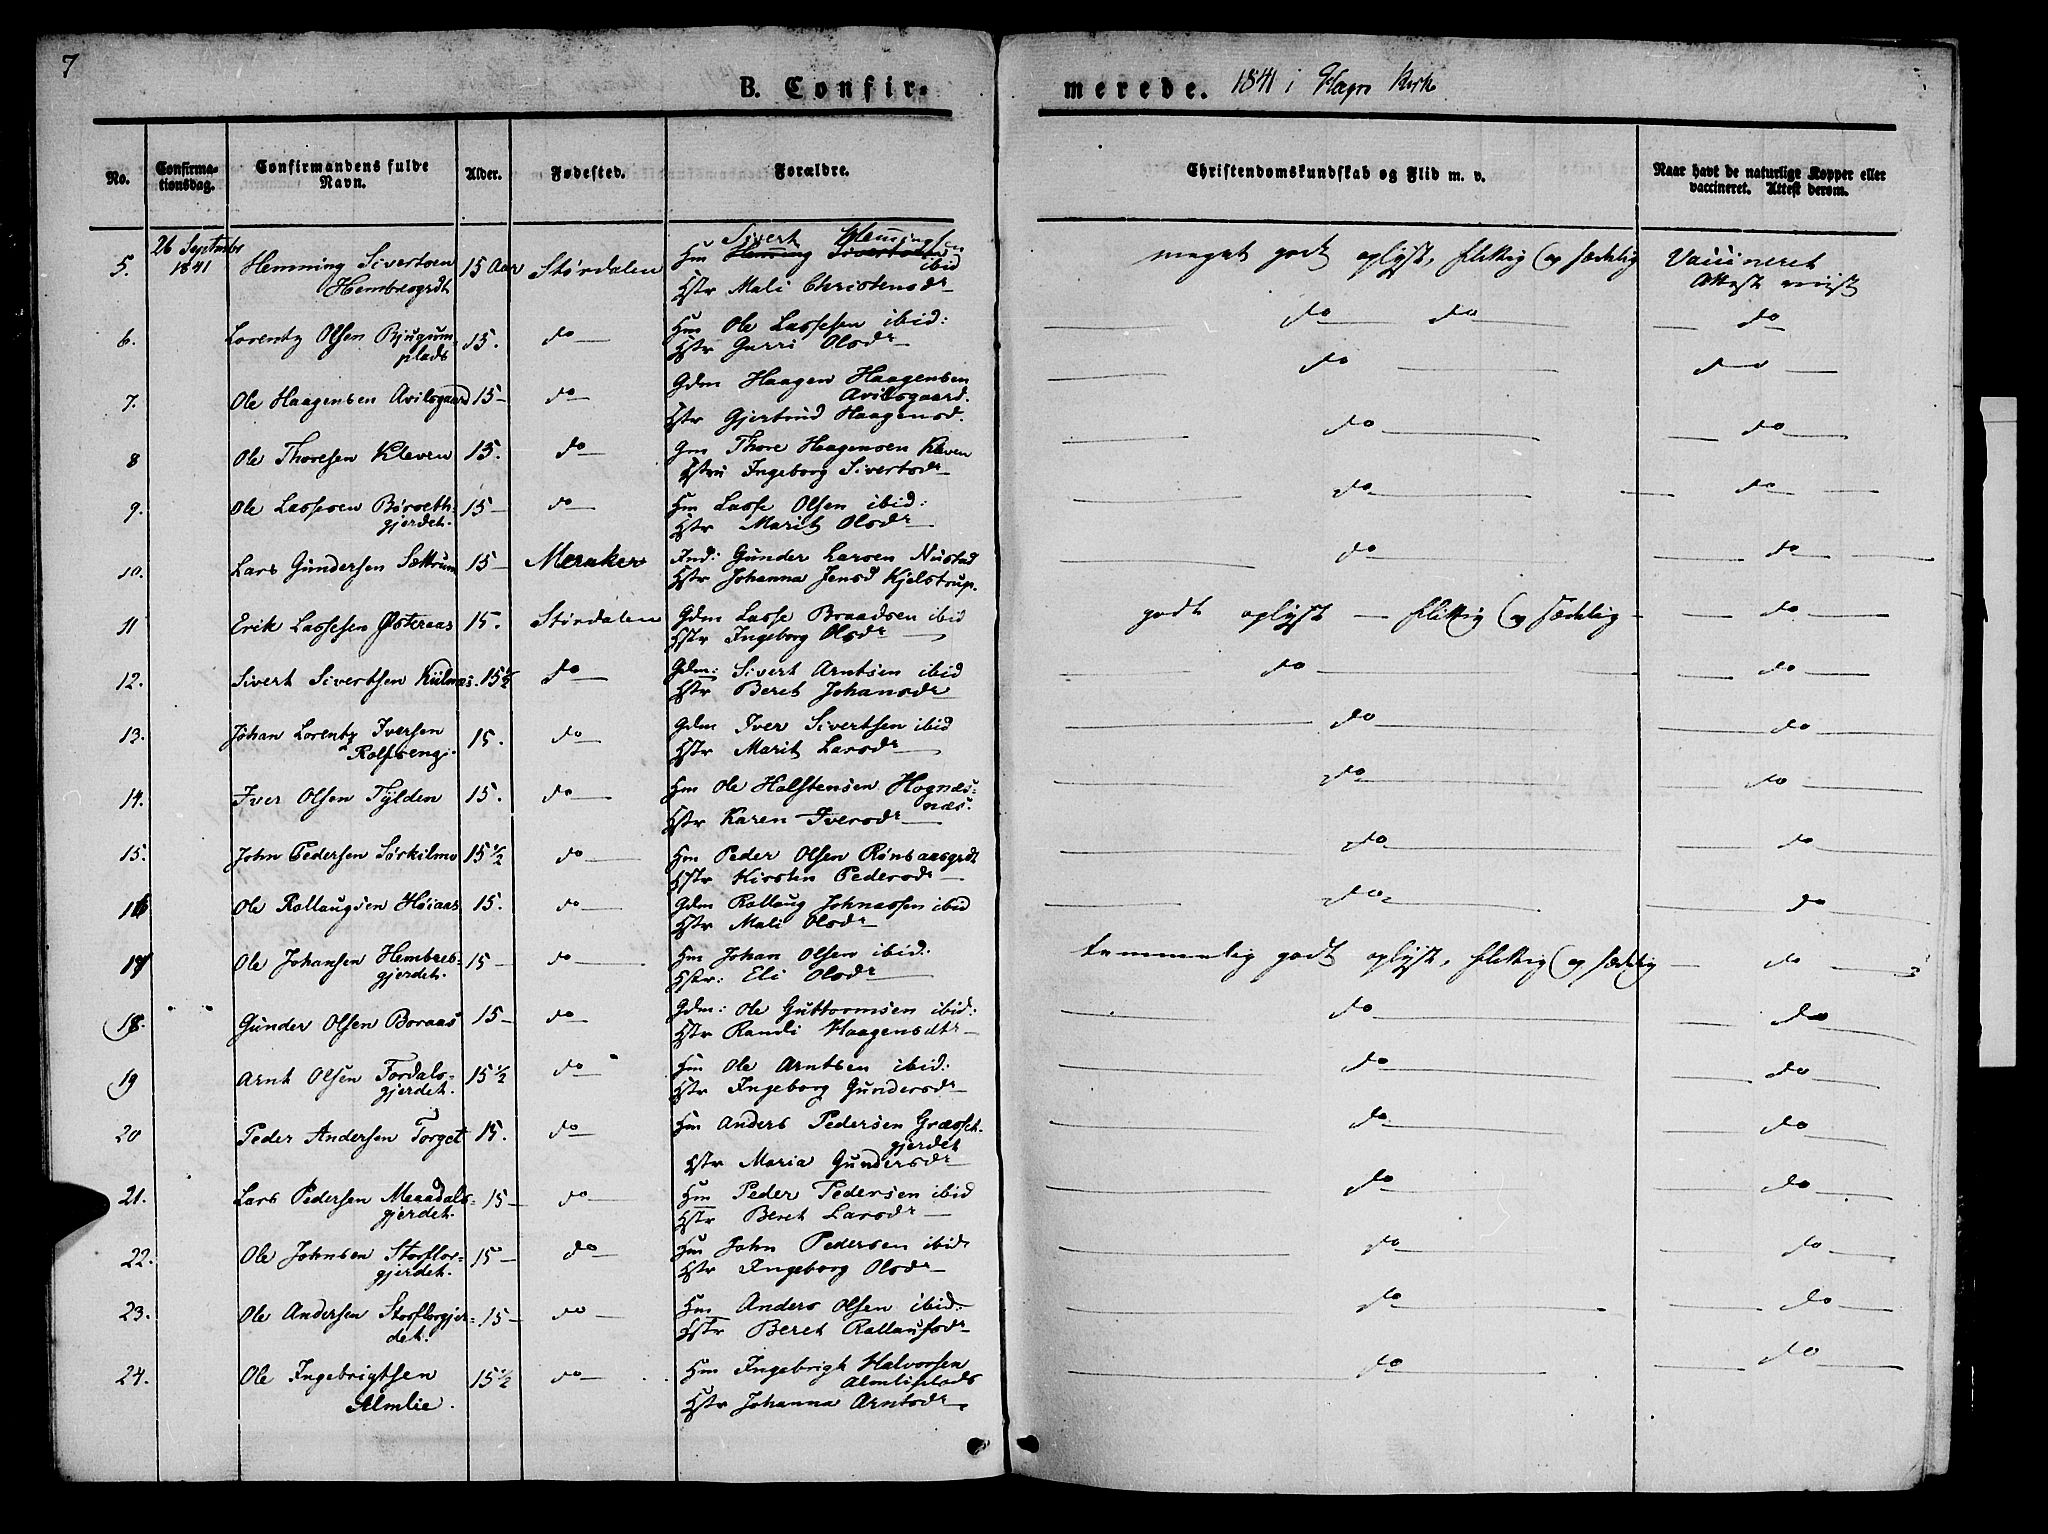 7
B. Confir-
merede. 1841 i Hegre Kirke
No.
Confirma-
tionsdag.
Confirmandens fulde
Navn.
Alder.
Fødested.
Forældre.
Christendomskundskab og Flid m. v.
Naar havt de naturlige Kopper eller
vaccineret. Attest derom.
26 Septmbr
1841
5. Hemming Sivertsen 15 Aar Størdalen Hm Hemming Sivertsen meget godt oplyst, flittig og sædelig Vaccineret
Sivert Hemingsen
Hembregrdt ibid
Hstr Mali Christensdr Attest viist
6. Lorentz Olsen Bjugum- 15. do Hm Ole Lassesen ibid: do do do
plads Hstr Gurri Olsdr
7. Ole Haagensen Avilsgaard 15- do Gdm Haagen Haagensen do do
Avilsgaard.
Hstr Gjertrud Haagensd.
8 Ole Thoresen Kleven 15. do Gm Thore Haagensen Kleven do do
Hstru Ingeborg Sivertsdr
9. Ole Lassesen Børseth- 15- do Hm Lasse Olsen ibid: do do
gjerdet. Hstr Marit Olsdr
10. Lars Gundersen Sættrum 15- Meraker Ind: Gunder Larsen Nustad do do
Hstr Johanna Jensd Kjelstrup.
11 Erik Lassesen Østeraas 15. Størdalen Gdm Lasse Braadsen ibid godt oplyst - flittig og sædelig - do
Hstr Ingeborg Olsdr
12. Sivert Sivertsen Kiilnæs. 15½ do Gdm: Sivert Arntsen ibid do do
Hstr Beret Johansdr
13. Johan Lorentz Iversen 15. do Gdm Iver Sivertsen ibid do do
Rolfsengj. Hstr Marit Larsdr
14. Iver Olsen Tylden 15. do Hm Ole Halstensen Hognæs- do do
næs.
Hstr Karen Iversdr
15. John Pedersen Sørkilmo 15½ do Hm Peder Olsen Rønsaasgrdt do do
Hstr Kirsten Pedersdr
16 Ole Rollaugsen Høiaas 15. do Gdm Rollaug Johnassen ibid do do
Hstr Mali Olsdr
17 Ole Johansen Hembres- 15- do Hm Johan Olsen ibid. temmelig godt oplyst, flittig og sædelig - do
gjerdet. Hstr: Eli Olsdr
18. Gunder Olsen Boraas 15- do Gdm: Ole Guttormsen ibid: do do
Hstr Randi Haagensdtr
19 Arnt Olsen Fordals- 15½ do Hm Ole Arntsen ibid: do do
gjerdet. Hstr Ingeborg Gundersdr
20 Peder Andersen Torget 15. do Hm Anders Pedersen Græsset- do do
gjerdet
Hstr Maria Gundersdr
21. Lars Pedersen Meaadals- 15- do Hm Peder Pedersen ibid do do
gjerdet. Hstr Beret Larsdr
22. Ole Johnsen Storflor- 15- do Hm John Pedersen ibid do do
gjerdet. Hstr Ingeborg Olsdr
23. Ole Andersen Storflorgjer- 15- do Hm Anders Olsen ibid: do do
det. Hstr Beret Rollaufsdr
24. Ole Ingebrigtsen 15½ do Hm Ingebrigt Halvorsen do do
Almlie. Almliplads
Hstr Johanna Arntsdr